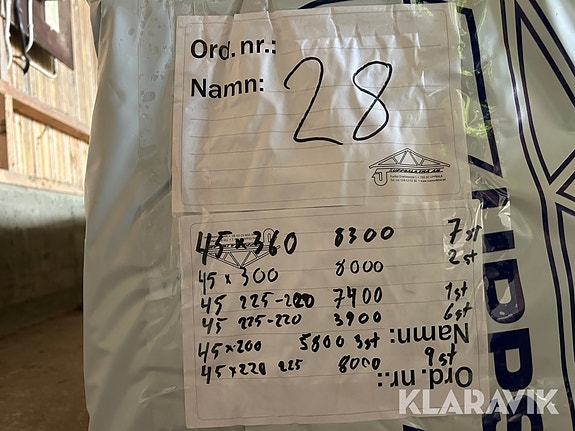 Ord.nr.:
Namn:
28
45 x 360 8300 7 st
45 x 300 8000 2 st
45 225-220 7400 1 st
45 225-220 3900 6 st
45 x 200 5800 3 st
45 x 220 225 8000 9 st
Namn:
Ord.nr.:
KLARAVIK